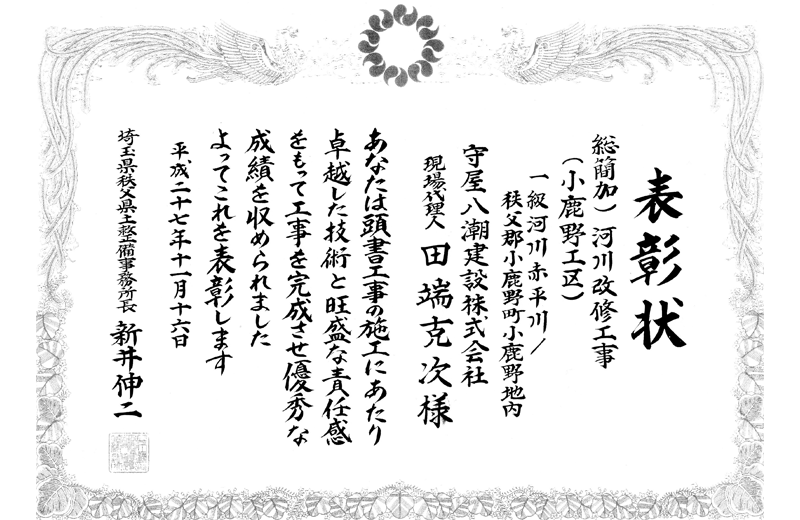 表彰状
総簡加)河川改修工事
(小鹿野工区)
一級河川赤平川/
秩父郡小鹿野町小鹿野地内
守屋八潮建設株式会社
現場代理人 田端克次様
あなたは頭書工事の施工にあたり
卓越した技術と旺盛な責任感
をもって工事を完成させ優秀な
成績を収められました
よってこれを表彰します
平成二十七年十一月十六日
埼玉県秩父県土整備事務所長 新井伸二